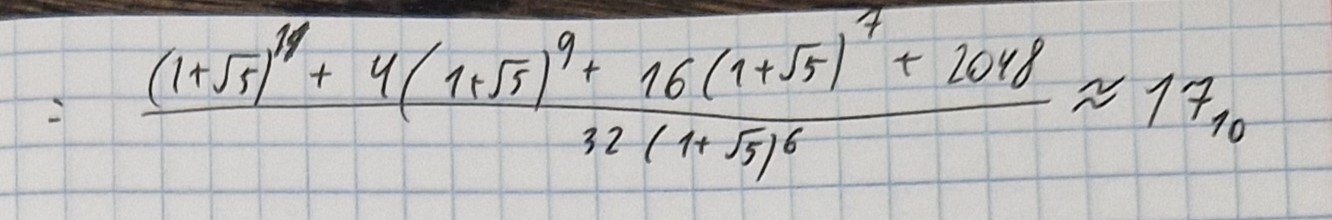 = \frac{(1+√5)^{11} + 4(1+√5)^9 + 16(1+√5)^7 + 2048}{32(1+√5)^6} ≈ 17_{10}